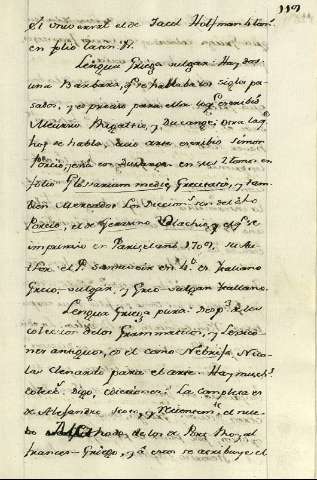 113
el universal el de Jacob Hofman 4 tom.
en folio latin R.
Lengua Griega vulgar: Hay dos
una Barbara, q.e se hablaba los siglos pa-
sados, y es preciso para ella lo q.e escribió
Meursio Rigaltio, y Ducange; otra la q.e
hoy se habla, cuio arte escribio Simon
Porcio, está en Ducange en sus 2 tomos en
folio Glossarium mediæ Grecitatis, y tam-
bien Mercador Los Diccion.s son del d.ho
Porcio, el de Gerasimo Vlachio, y el q.e se
imprimio en Paris el año 1709, su Au-
thor el P. Somavoir en 4.o es Italiano
Greco-vulgar, y Greco vulgar Italiano.
Lengua Griega pura: Desp.s de la
coleccion de los Grammaticos, y Lexico-
nes antiguos, es el como Nebrisa, Nico-
las Clenardo para el arte. Hay much.s
digo, ediciones: La completa es
de Alejandro Scoto, y el nue-
bo Methodo de los de Port Royal
frances-Griego, y a estos se atribuye el